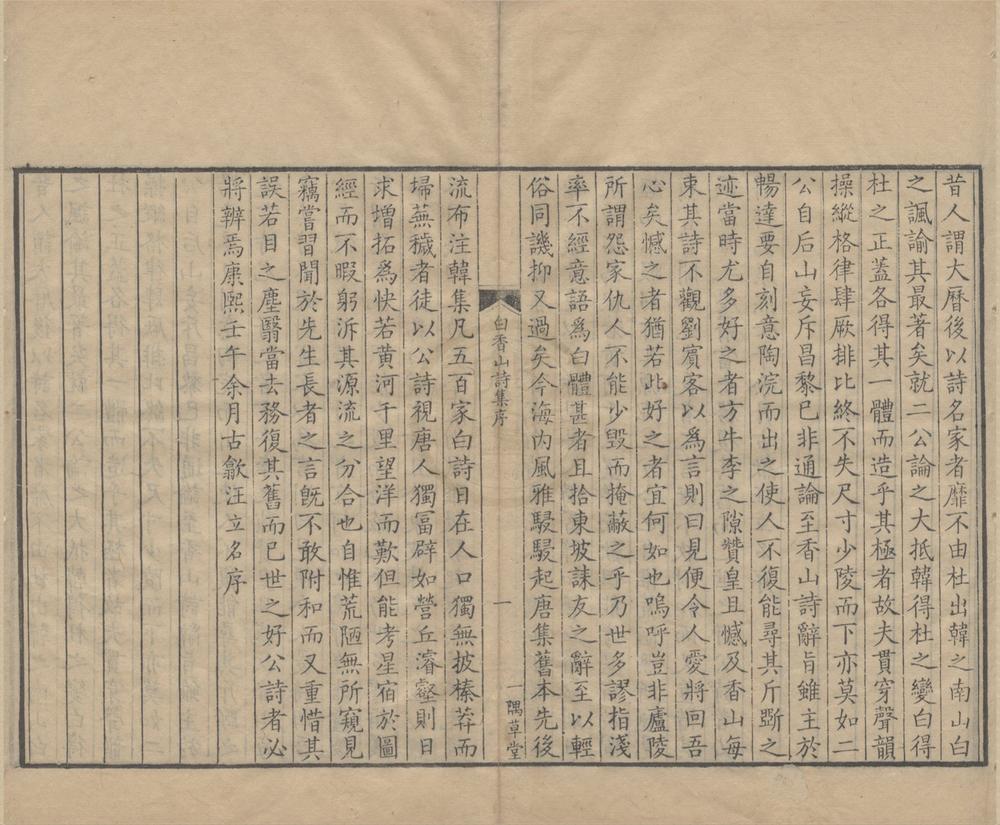 昔人謂大曆後以詩名家者靡不由杜出韓之南山白
之諷諭其最著矣就二公論之大抵韓得杜之變白得
杜之正蓋各得其一體而造乎其極者故夫貫穿聲韻
操縱格律肆厥排比終不失尺寸少陵而下亦莫如二
公自后山妄斥昌黎已非通論至香山詩辭旨雖主於
暢達要自刻意陶浣而出之使人不復能尋其斤斲之
迹當時尤多好之者方牛李之隙贊皇且憾及香山每
東其詩不觀劉賓客以為言則曰見便令人愛將回吾
心矣憾之者猶若此好之者宜何如也嗚呼豈非廬陵
所謂怨家仇人不能少毀而掩蔽之乎乃世多謬指淺
率不經意語為白體甚者且拾東坡誄友之辭至以輕
俗同譏抑又過矣今海內風雅駸駸起唐集舊本先後
白香山詩集序
一
一隅草堂
流布注韓集凡五百家白詩日在人口獨無披榛莽而
埽蕪穢者徒以公詩視唐人獨冨辟如營丘濬壑則日
求增拓爲快若黃河千里望洋而歎但能考星宿於圖
經而不暇躬泝其源流之分合也自惟荒陋無所窺見
竊嘗習聞於先生長者之言旣不敢附和而又重惜其
誤若目之塵翳當去務復其舊而已世之好公詩者必
將辨焉康熙壬午余月古歙汪立名序